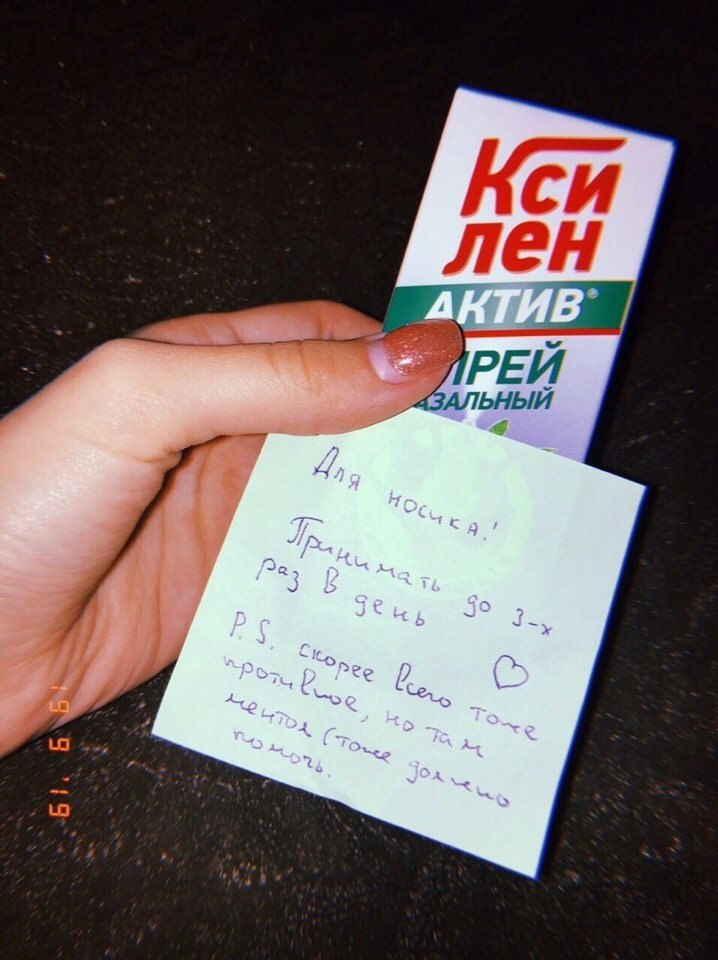 Кси
лен
АКТИВ®
ПРЕЙ
АЗАЛЬНЫЙ
Для носика!
Принимать до 3-х
раз в день
P.S. скорее всего тоже
противное, но там
ментол (тоже должно
помочь.
19 9 '19